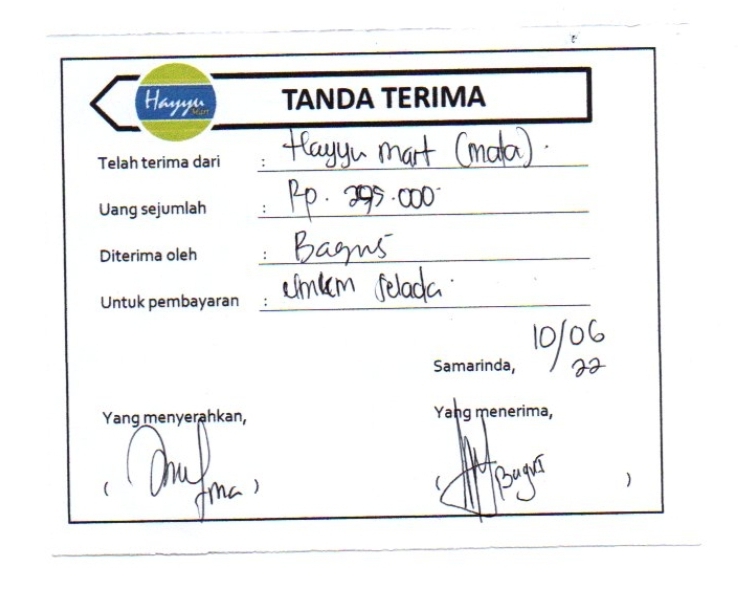 Hayyu
Mart
TANDA TERIMA
Telah terima dari : Hayyu Mart (mata).
Uang sejumlah : Rp. 295.000
Diterima oleh : Bagus
Untuk pembayaran : umkm selada.
10/06
Samarinda, 22
Yang menyerahkan, Yang menerima,
( ma ) ( Bagus )